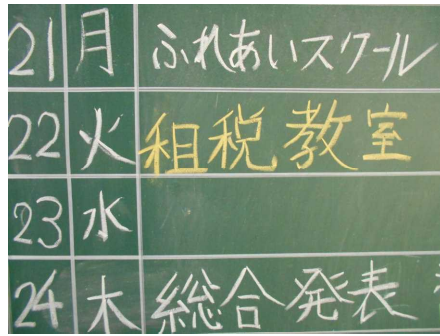 21 月 ふれあいスクール
22 火 租税教室
23 水
24 木 総合発表